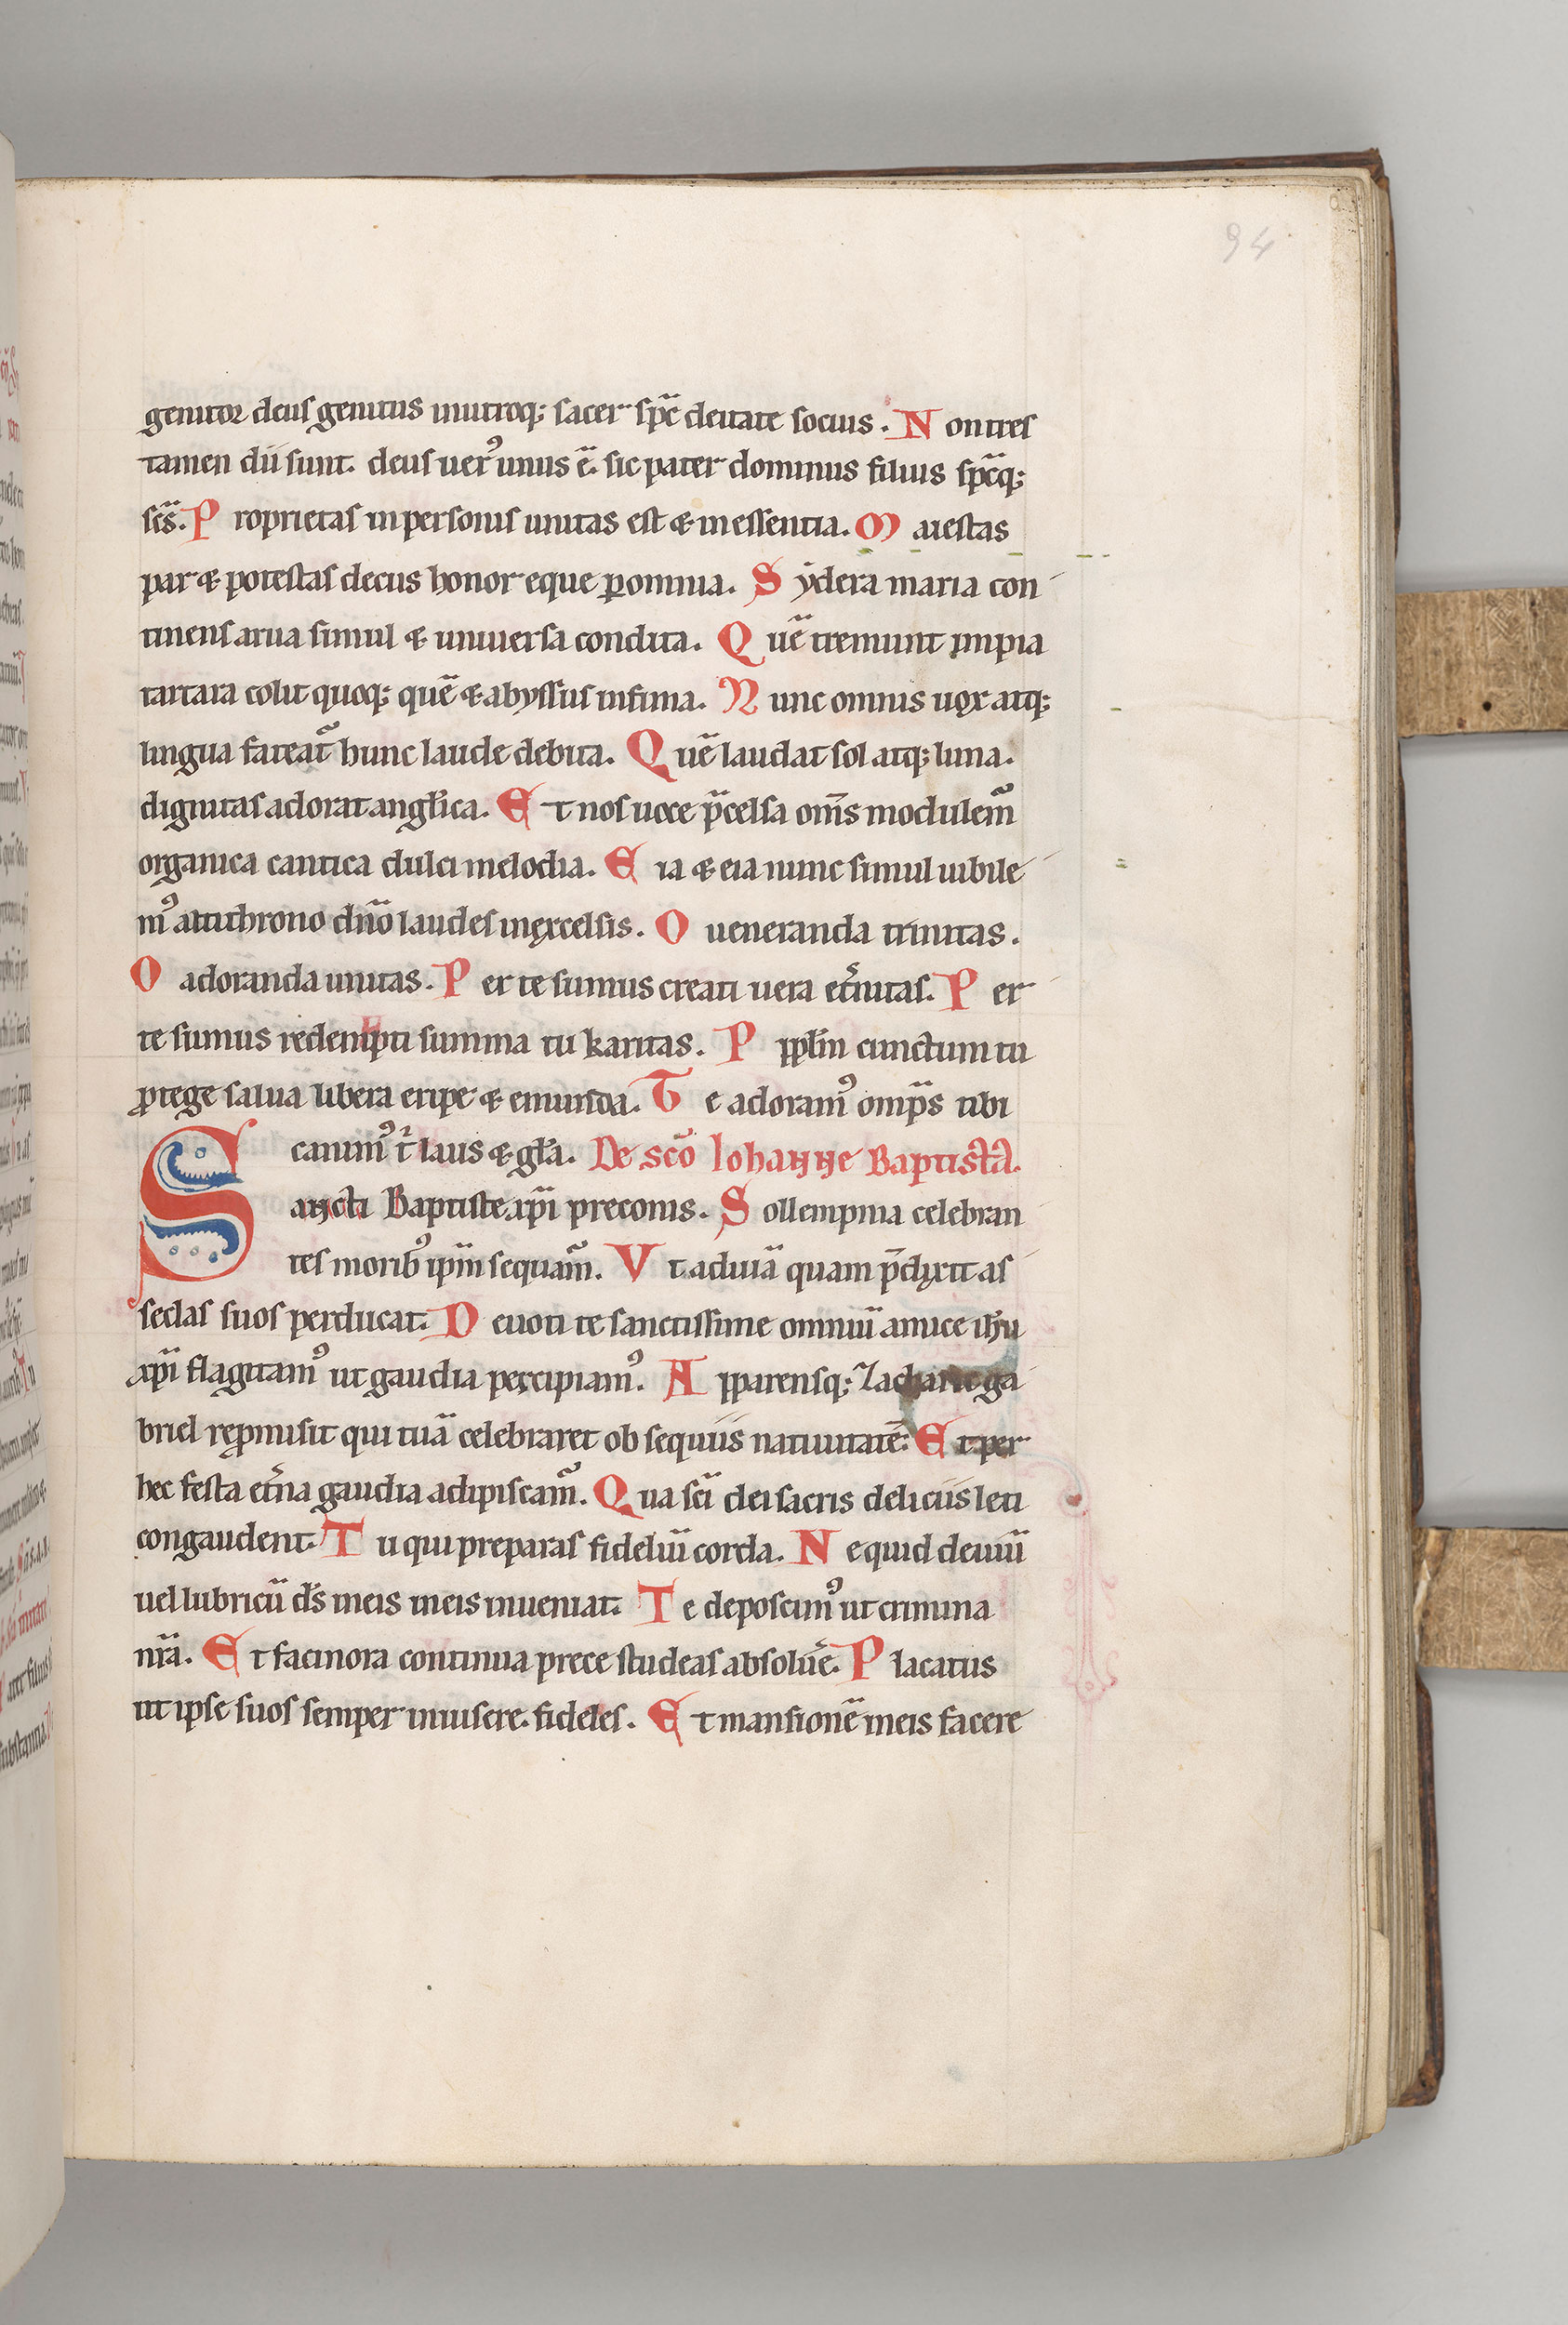 94
genitor deus genitus inutroq; sacer sp̄c deitate socius. Non tres
tamen dii sunt. deus uer᾿ unus ē. sic pater dominus filius sp̄cq;
sc̄s. Proprietas in personis unitas est & in essentia. Maiestas
par & potestas decus honor eque ꝑ omnia. Sẏdera maria con
tinens arua simul & uniuersa condita. Quē tremunt impia
tartara colit quoq; quē & abyssus infima. Nunc omnis uox atq;
lingua fateat᷑ hunc laude debita. Quē laudat sol atq; luna.
dignitas adorat angl̄ica. Et nos uoce p̄celsa om̄s modulem᷑
organica cantica dulci melodia. Eia & eia nunc simul iubile
mꝰ altithrono dn̄o laudes in excelsis. O ueneranda trinitas.
O adoranda unitas. Per te sumus creati uera et̓nitas. Per
te sumus redempti summa tu karitas. P ppl̄m cunctum tu
ꝓtege salua libera eripe & emunda. Te adoramꝰ omp̄s tibi
canimꝰ t̓ laus & gl̄a. De sc̄o Iohanne Baptista.
Sancti Baptiste xp̄i preconis. Sollempnia celebran
tes moribꝰ ip̄m sequam᷑. Vt ad uiā quam p̄dixit as
seclas suos perducat. Deuoti te sanctissime omniū amice ih̄u
xp̄i flagitamꝰ ut gaudia percipiamꝰ. Apparensq; Zacharie ga
briel repꝓmisit qui tuā celebraret obsequiis natiuitatē. Et per
hec festa et̓na gaudia adipiscam᷑. Qua sc̄i dei sacris deliciis leti
congaudent. Tu qui preparas fideliū corda. Ne quid deuiū
uel lubricū d̄s in eis in eis inueniat. Te deposcimꝰ ut crimina
nr̄a. Et facinora continua prece studeas absolu̓e. Placatus
ut ipse suos semper inuisere. fideles. Et mansionē in eis facere